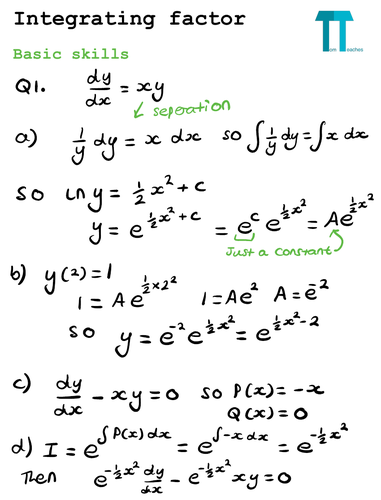 Integrating factor
Tom Teaches
Basic skills
Q1. dy/dx = xy
seperation
a) 1/y dy = x dx so ∫ 1/y dy = ∫ x dx
so ln y = 1/2 x² + c
y = e^(1/2 x² + c) = e^c e^(1/2 x²) = A e^(1/2 x²)
Just a constant
b) y(2) = 1
1 = A e^(1/2 × 2²) 1 = A e² A = e^-2
so y = e^-2 e^(1/2 x²) = e^(1/2 x² - 2)
c) dy/dx - xy = 0 so P(x) = -x
Q(x) = 0
d) I = e^(∫ P(x) dx) = e^(∫ -x dx) = e^(-1/2 x²)
Then e^(-1/2 x²) dy/dx - e^(-1/2 x²) xy = 0